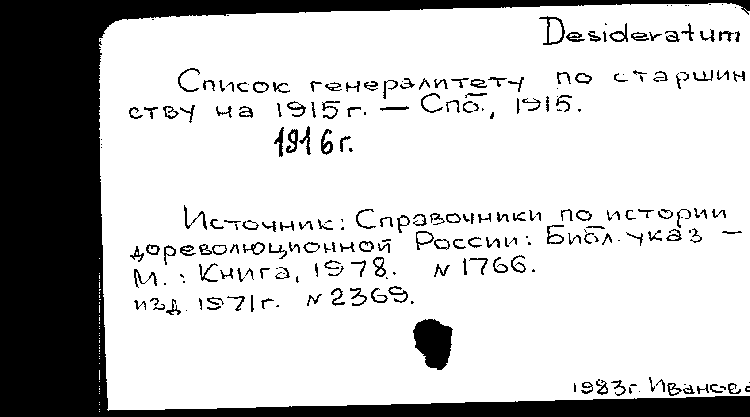 Desideratum
Список генералитету по старшин
ству на 1915 г. — Спб., 1915.
1916 г.
Источник: Справочники по истории
дореволюционной России: Библ. указ —
М.: Книга, 1978. № 1766.
изд. 1971 г. № 2369.
1983 г. Иванова